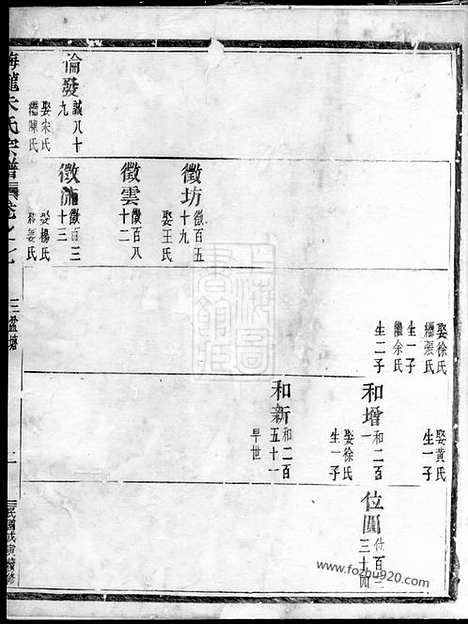 娶徐氏
繼張氏
生一子
繼余氏
生二子
娶黃氏
生一子
和增
和二百
一
娶徐氏
生一子
和新
和二百
五十一
早世
位
位百三
三十四
徵坊
徵百五
十九
娶王氏
徵雲
徵百八
十二
徵
徵百三
十三
娶楊氏
姜氏
論發
誠八十
九
娶宋氏
繼陳氏
氏宗譜
卷之七
三盆塘
二
民國
www.fozhu920.com